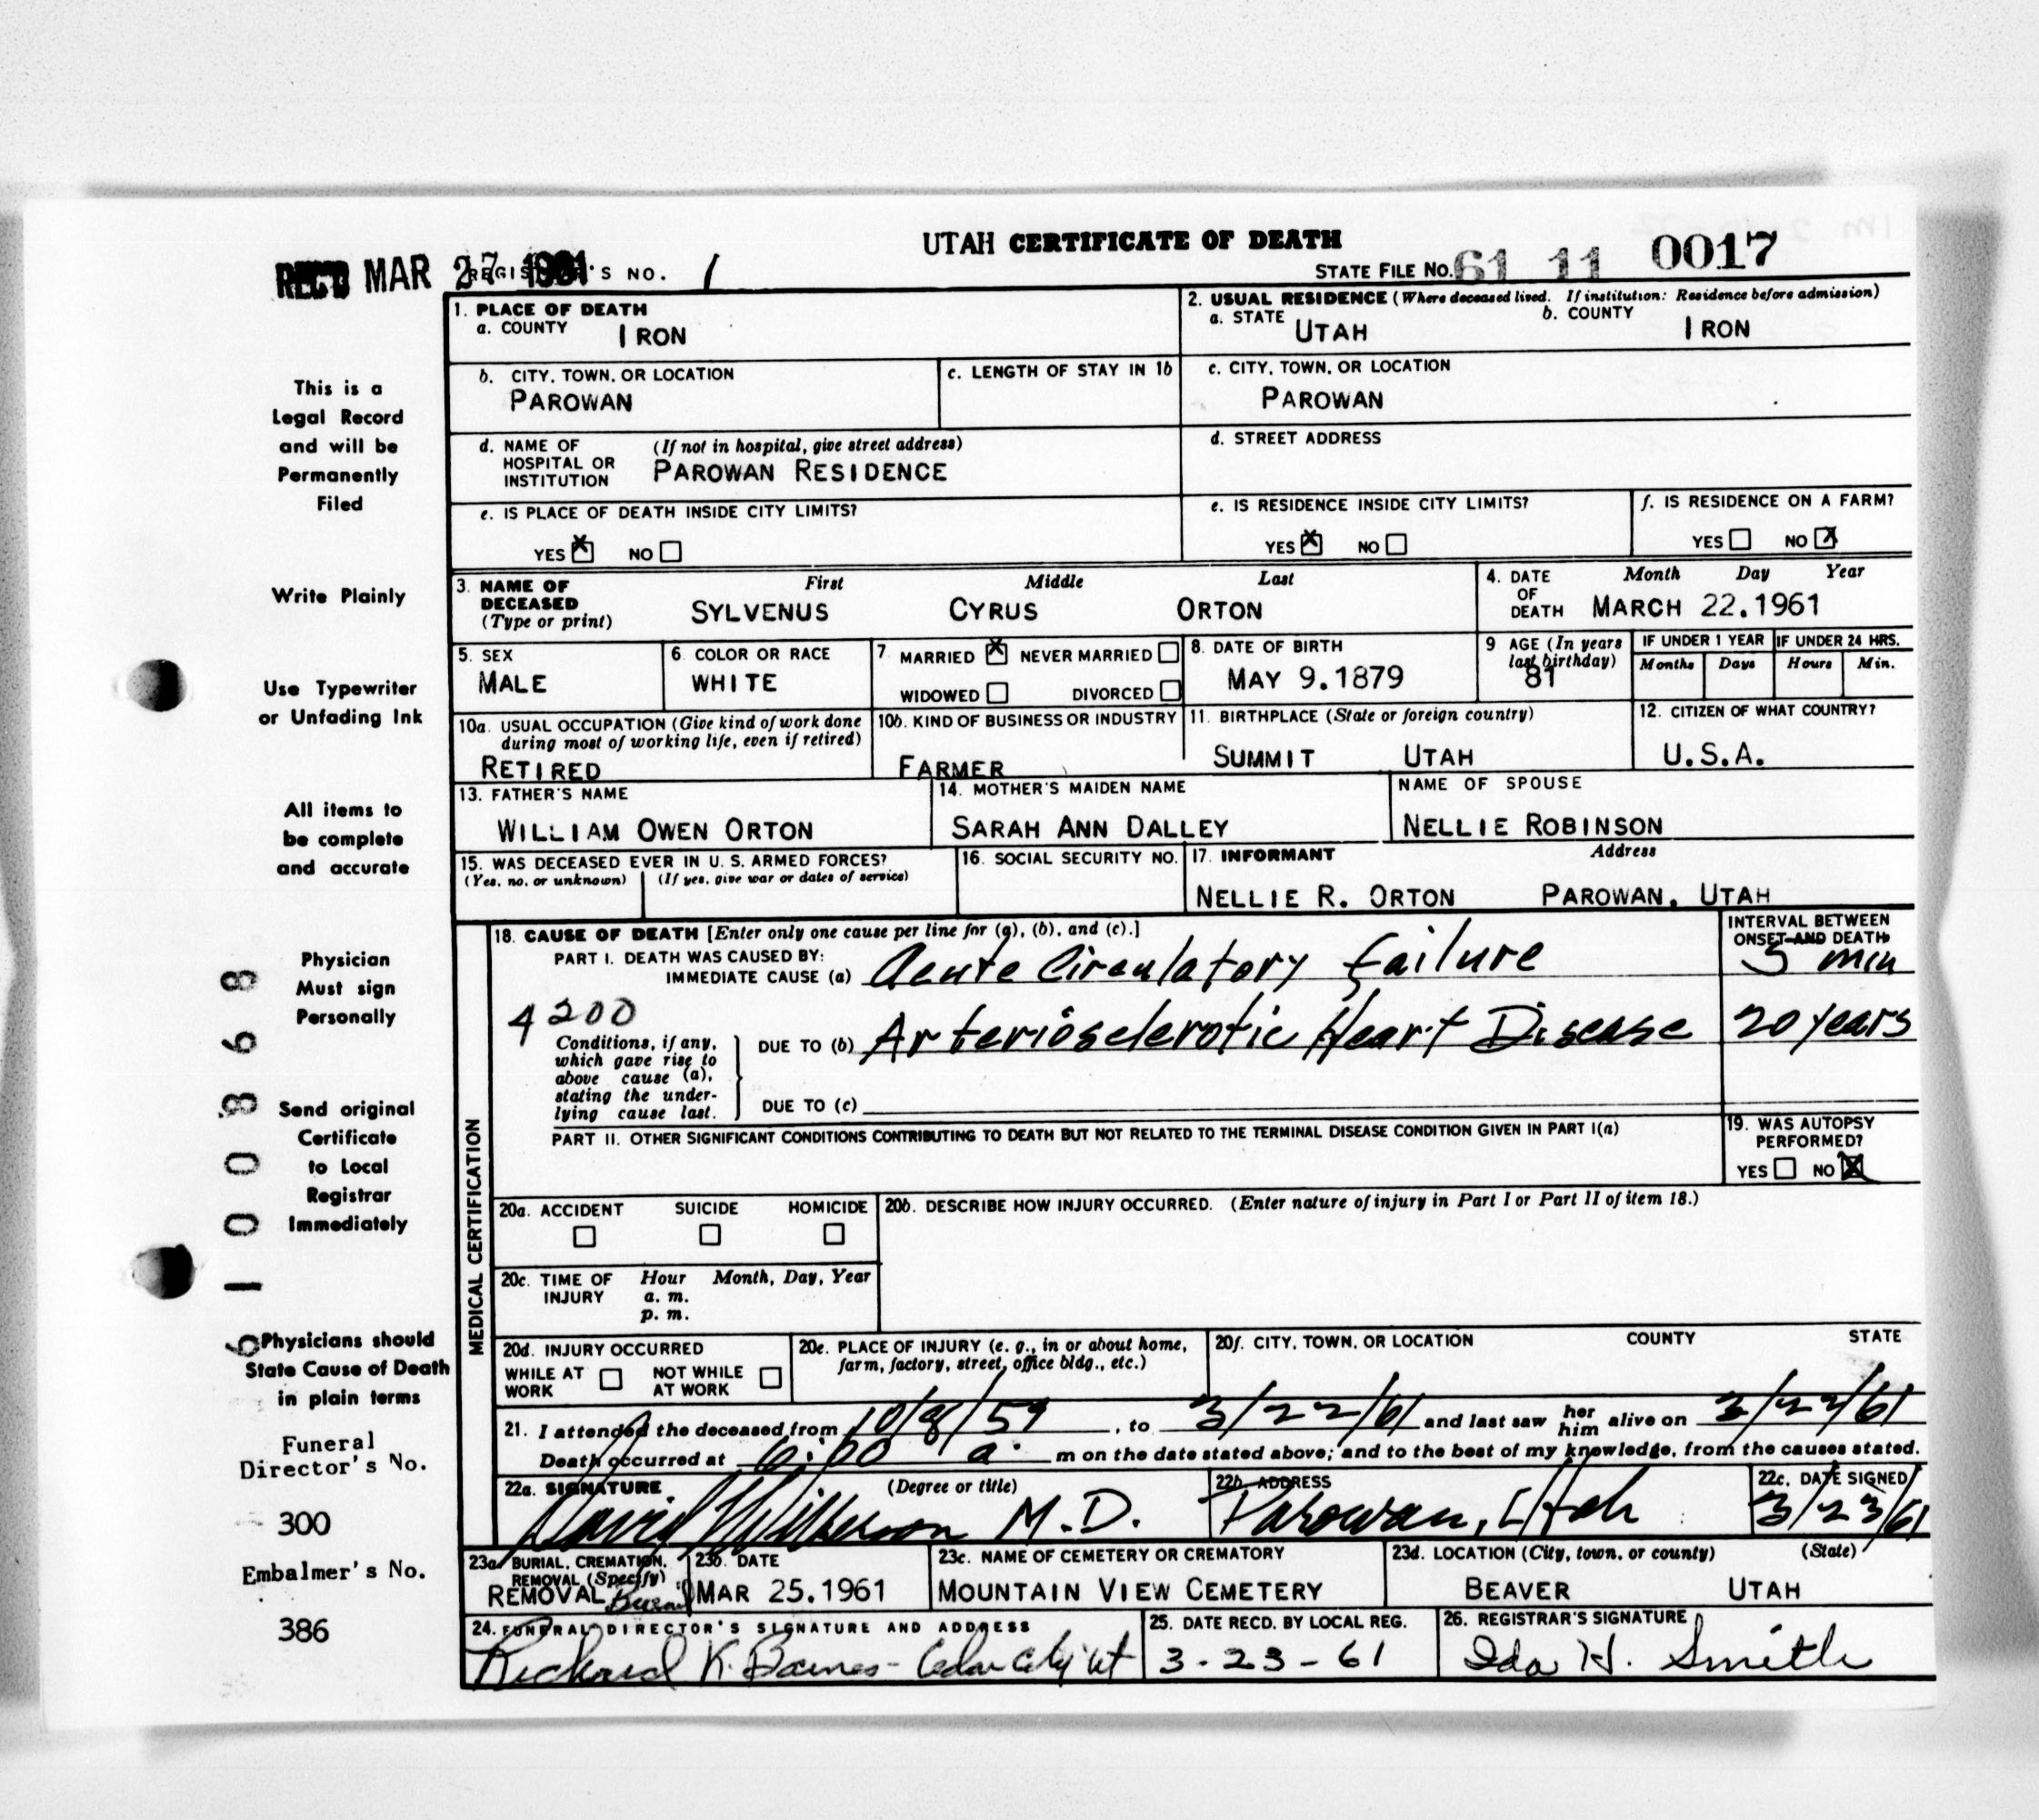 UTAH CERTIFICATE OF DEATH
REC'D MAR 27 1961 REGISTRAR'S NO. 1
STATE FILE NO. 61 11 0017
1. PLACE OF DEATH
a. COUNTY IRON
2. USUAL RESIDENCE (Where deceased lived. If institution: Residence before admission)
a. STATE UTAH b. COUNTY IRON
b. CITY, TOWN, OR LOCATION
PAROWAN
c. LENGTH OF STAY IN 1b
c. CITY, TOWN, OR LOCATION
PAROWAN
d. NAME OF HOSPITAL OR INSTITUTION (If not in hospital, give street address)
PAROWAN RESIDENCE
d. STREET ADDRESS
e. IS PLACE OF DEATH INSIDE CITY LIMITS?
YES X NO
e. IS RESIDENCE INSIDE CITY LIMITS?
YES X NO
f. IS RESIDENCE ON A FARM?
YES NO X
3. NAME OF DECEASED (Type or print)
First Middle Last
SYLVENUS CYRUS ORTON
4. DATE OF DEATH Month Day Year
MARCH 22.1961
5. SEX
MALE
6. COLOR OR RACE
WHITE
7 MARRIED X NEVER MARRIED
WIDOWED DIVORCED
8. DATE OF BIRTH
MAY 9.1879
9 AGE (In years last birthday)
81
IF UNDER 1 YEAR
Months Days
IF UNDER 24 HRS.
Hours Min.
10a. USUAL OCCUPATION (Give kind of work done during most of working life, even if retired)
RETIRED
10b. KIND OF BUSINESS OR INDUSTRY
FARMER
11. BIRTHPLACE (State or foreign country)
SUMMIT UTAH
12. CITIZEN OF WHAT COUNTRY?
U.S.A.
13. FATHER'S NAME
WILLIAM OWEN ORTON
14. MOTHER'S MAIDEN NAME
SARAH ANN DALLEY
NAME OF SPOUSE
NELLIE ROBINSON
15. WAS DECEASED EVER IN U. S. ARMED FORCES?
(Yes, no, or unknown) (If yes, give war or dates of service)
16. SOCIAL SECURITY NO.
17. INFORMANT Address
NELLIE R. ORTON PAROWAN, UTAH
MEDICAL CERTIFICATION
18. CAUSE OF DEATH [Enter only one cause per line for (a), (b), and (c).]
PART I. DEATH WAS CAUSED BY:
IMMEDIATE CAUSE (a) Acute Circulatory failure
INTERVAL BETWEEN ONSET AND DEATH
5 min
4200
Conditions, if any, which gave rise to above cause (a), stating the underlying cause last.
DUE TO (b) Arteriosclerotic Heart Disease 20 years
DUE TO (c)
PART II. OTHER SIGNIFICANT CONDITIONS CONTRIBUTING TO DEATH BUT NOT RELATED TO THE TERMINAL DISEASE CONDITION GIVEN IN PART I(a)
19. WAS AUTOPSY PERFORMED?
YES NO X
20a. ACCIDENT SUICIDE HOMICIDE
20b. DESCRIBE HOW INJURY OCCURRED. (Enter nature of injury in Part I or Part II of item 18.)
20c. TIME OF INJURY Hour Month, Day, Year
a. m.
p. m.
20d. INJURY OCCURRED
WHILE AT WORK NOT WHILE AT WORK
20e. PLACE OF INJURY (e. g., in or about home, farm, factory, street, office bldg., etc.)
20f. CITY, TOWN, OR LOCATION COUNTY STATE
21. I attended the deceased from 10/8/59, to 3/22/61 and last saw her him alive on 3/22/61
Death occurred at 6:00 a. m on the date stated above; and to the best of my knowledge, from the causes stated.
22a. SIGNATURE (Degree or title)
David Wilkerson M.D.
22b. ADDRESS
Parowan, Utah
22c. DATE SIGNED
3/23/61
23a. BURIAL, CREMATION, REMOVAL (Specify)
REMOVAL Burial
23b. DATE
MAR 25.1961
23c. NAME OF CEMETERY OR CREMATORY
MOUNTAIN VIEW CEMETERY
23d. LOCATION (City, town, or county) (State)
BEAVER UTAH
24. FUNERAL DIRECTOR'S SIGNATURE AND ADDRESS
Richard K. Barnes - Cedar City Ut
25. DATE RECD. BY LOCAL REG.
3-23-61
26. REGISTRAR'S SIGNATURE
Ida H. Smith
This is a
Legal Record
and will be
Permanently
Filed
Write Plainly
Use Typewriter
or Unfading Ink
All items to
be complete
and accurate
Physician
Must sign
Personally
Send original
Certificate
to Local
Registrar
Immediately
Physicians should
State Cause of Death
in plain terms
Funeral
Director's No.
300
Embalmer's No.
386